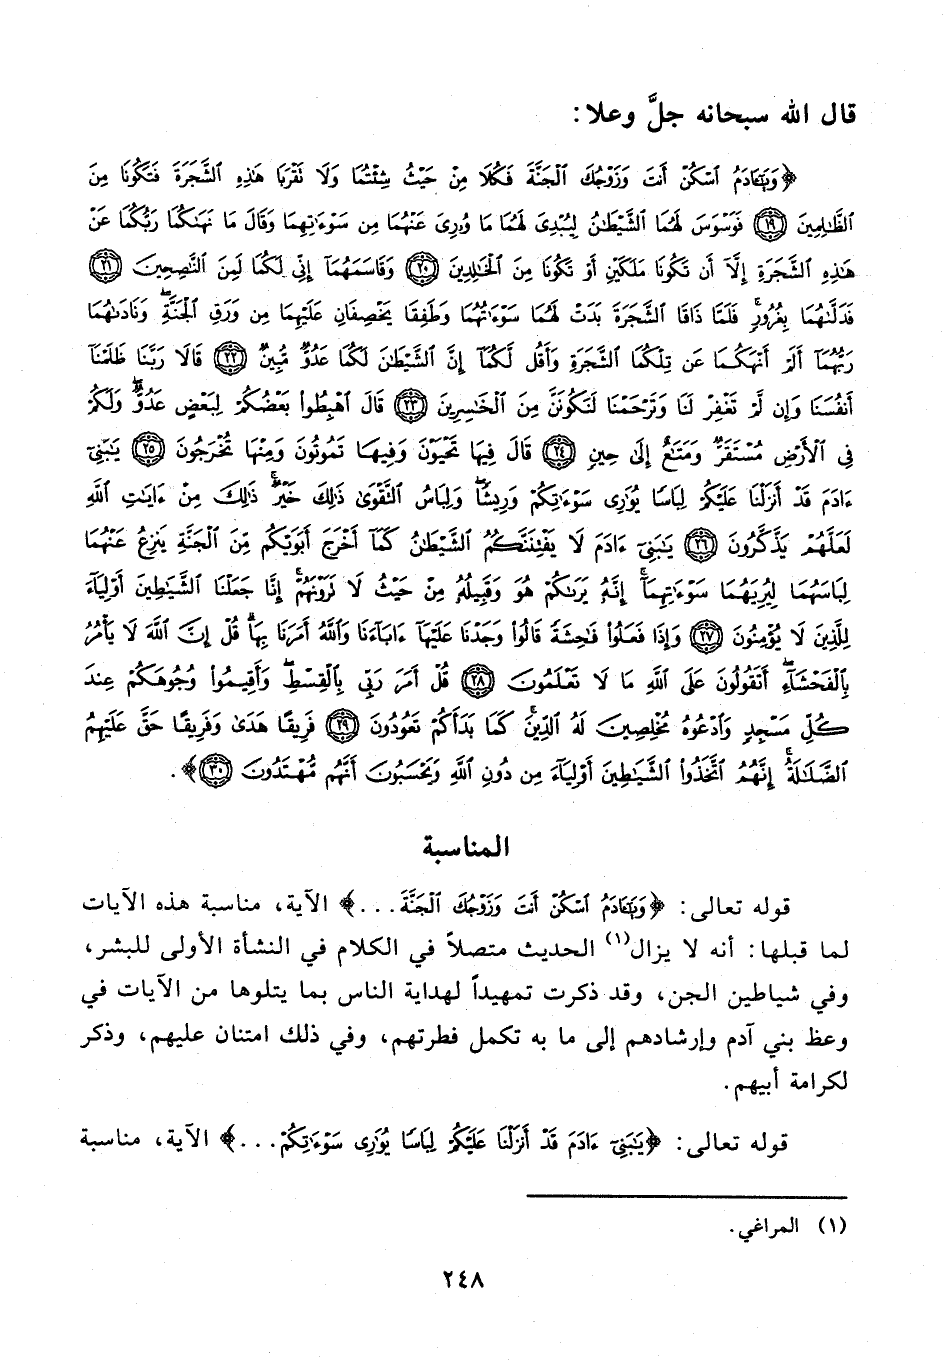 قال الله سبحانه جلَّ وعلا:
﴿وَيَـٰٓـَٔادَمُ ٱسْكُنْ أَنتَ وَزَوْجُكَ ٱلْجَنَّةَ فَكُلَا مِنْ حَيْثُ شِئْتُمَا وَلَا تَقْرَبَا هَـٰذِهِ ٱلشَّجَرَةَ فَتَكُونَا مِنَ
ٱلظَّـٰلِمِينَ ﴿١٩﴾ فَوَسْوَسَ لَهُمَا ٱلشَّيْطَـٰنُ لِيُبْدِىَ لَهُمَا مَا وُۥرِىَ عَنْهُمَا مِن سَوْءَٰتِهِمَا وَقَالَ مَا نَهَىٰكُمَا رَبُّكُمَا عَنْ
هَـٰذِهِ ٱلشَّجَرَةِ إِلَّآ أَن تَكُونَا مَلَكَيْنِ أَوْ تَكُونَا مِنَ ٱلْخَـٰلِدِينَ ﴿٢٠﴾ وَقَاسَمَهُمَآ إِنِّى لَكُمَا لَمِنَ ٱلنَّـٰصِحِينَ ﴿٢١﴾
فَدَلَّىٰهُمَا بِغُرُورٍۚ فَلَمَّا ذَاقَا ٱلشَّجَرَةَ بَدَتْ لَهُمَا سَوْءَٰتُهُمَا وَطَفِقَا يَخْصِفَانِ عَلَيْهِمَا مِن وَرَقِ ٱلْجَنَّةِۖ وَنَادَىٰهُمَا
رَبُّهُمَآ أَلَمْ أَنْهَكُمَا عَن تِلْكُمَا ٱلشَّجَرَةِ وَأَقُل لَّكُمَآ إِنَّ ٱلشَّيْطَـٰنَ لَكُمَا عَدُوٌّ مُّبِينٌ ﴿٢٢﴾ قَالَا رَبَّنَا ظَلَمْنَآ
أَنفُسَنَا وَإِن لَّمْ تَغْفِرْ لَنَا وَتَرْحَمْنَا لَنَكُونَنَّ مِنَ ٱلْخَـٰسِرِينَ ﴿٢٣﴾ قَالَ ٱهْبِطُوا۟ بَعْضُكُمْ لِبَعْضٍ عَدُوٌّۖ وَلَكُمْ
فِى ٱلْأَرْضِ مُسْتَقَرٌّ وَمَتَـٰعٌ إِلَىٰ حِينٍ ﴿٢٤﴾ قَالَ فِيهَا تَحْيَوْنَ وَفِيهَا تَمُوتُونَ وَمِنْهَا تُخْرَجُونَ ﴿٢٥﴾ يَـٰبَنِىٓ
ءَادَمَ قَدْ أَنزَلْنَا عَلَيْكُمْ لِبَاسًا يُوَٰرِى سَوْءَٰتِكُمْ وَرِيشًاۖ وَلِبَاسُ ٱلتَّقْوَىٰ ذَٰلِكَ خَيْرٌۚ ذَٰلِكَ مِنْ ءَايَـٰتِ ٱللَّهِ
لَعَلَّهُمْ يَذَّكَّرُونَ ﴿٢٦﴾ يَـٰبَنِىٓ ءَادَمَ لَا يَفْتِنَنَّكُمُ ٱلشَّيْطَـٰنُ كَمَآ أَخْرَجَ أَبَوَيْكُم مِّنَ ٱلْجَنَّةِ يَنزِعُ عَنْهُمَا
لِبَاسَهُمَا لِيُرِيَهُمَا سَوْءَٰتِهِمَآۗ إِنَّهُۥ يَرَىٰكُمْ هُوَ وَقَبِيلُهُۥ مِنْ حَيْثُ لَا تَرَوْنَهُمْۗ إِنَّا جَعَلْنَا ٱلشَّيَـٰطِينَ أَوْلِيَآءَ
لِلَّذِينَ لَا يُؤْمِنُونَ ﴿٢٧﴾ وَإِذَا فَعَلُوا۟ فَـٰحِشَةً قَالُوا۟ وَجَدْنَا عَلَيْهَآ ءَابَآءَنَا وَٱللَّهُ أَمَرَنَا بِهَاۗ قُلْ إِنَّ ٱللَّهَ لَا يَأْمُرُ
بِٱلْفَحْشَآءِۖ أَتَقُولُونَ عَلَى ٱللَّهِ مَا لَا تَعْلَمُونَ ﴿٢٨﴾ قُلْ أَمَرَ رَبِّى بِٱلْقِسْطِۖ وَأَقِيمُوا۟ وُجُوهَكُمْ عِندَ
كُلِّ مَسْجِدٍ وَٱدْعُوهُ مُخْلِصِينَ لَهُ ٱلدِّينَۚ كَمَا بَدَأَكُمْ تَعُودُونَ ﴿٢٩﴾ فَرِيقًا هَدَىٰ وَفَرِيقًا حَقَّ عَلَيْهِمُ
ٱلضَّلَـٰلَةُۗ إِنَّهُمُ ٱتَّخَذُوا۟ ٱلشَّيَـٰطِينَ أَوْلِيَآءَ مِن دُونِ ٱللَّهِ وَيَحْسَبُونَ أَنَّهُم مُّهْتَدُونَ ﴿٣٠﴾﴾.
المناسبة
قوله تعالى: ﴿وَيَـٰٓـَٔادَمُ ٱسْكُنْ أَنتَ وَزَوْجُكَ ٱلْجَنَّةَ...﴾ الآية، مناسبة هذه الآيات
لما قبلها: أنه لا يزال(١) الحديث متصلاً في الكلام في النشأة الأولى للبشر،
وفي شياطين الجن، وقد ذكرت تمهيداً لهداية الناس بما يتلوها من الآيات في
وعظ بني آدم وإرشادهم إلى ما به تكمل فطرتهم، وفي ذلك امتنان عليهم، وذكر
لكرامة أبيهم.
قوله تعالى: ﴿يَـٰبَنِىٓ ءَادَمَ قَدْ أَنزَلْنَا عَلَيْكُمْ لِبَاسًا يُوَٰرِى سَوْءَٰتِكُمْ...﴾ الآية، مناسبة
(١) المراغي.
٢٤٨